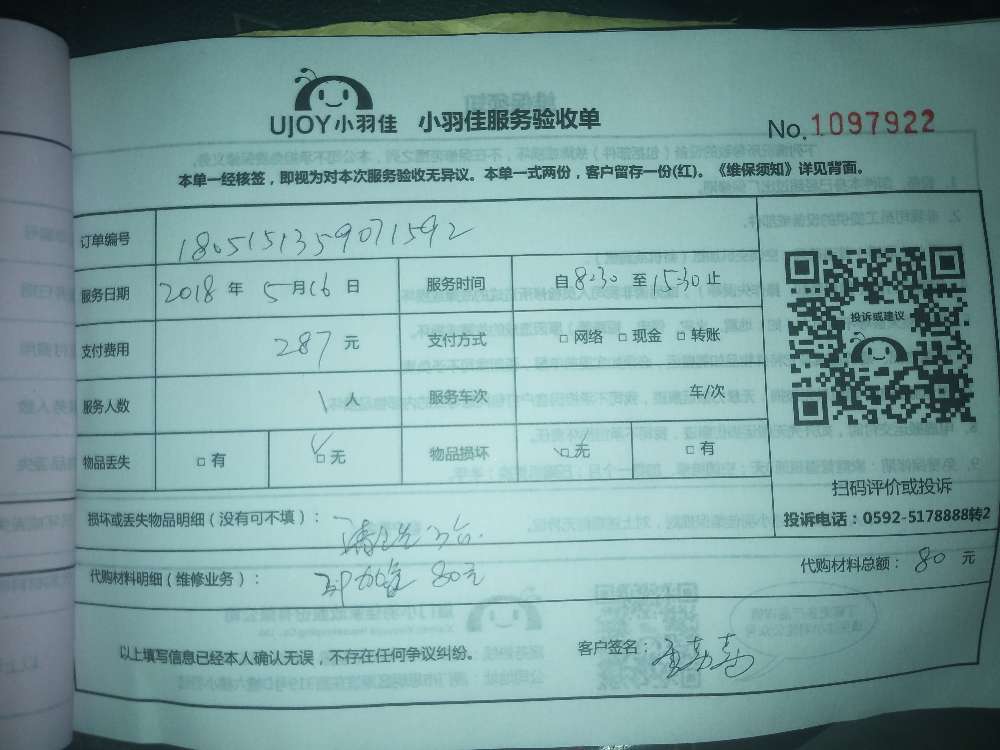 UJOY小羽佳 小羽佳服务验收单
No.1097922
本单一经核签，即视为对本次服务验收无异议。本单一式两份，客户留存一份(红)。《维保须知》详见背面。
订单编号 1805151359071592
服务日期 2018 年 5 月 16 日 服务时间 自 8:30 至 15:30 止
支付费用 287 元 支付方式 □ 网络 □ 现金 □ 转账
服务人数 1 人 服务车次 车/次
物品丢失 □ 有 □ 无 物品损坏 □ 无 □ 有
投诉或建议
扫码评价或投诉
投诉电话：0592-5178888转2
损坏或丢失物品明细（没有可不填）： 清洗3台
代购材料明细（维修业务）： 80元
代购材料总额： 80 元
以上填写信息已经本人确认无误，不存在任何争议纠纷。 客户签名：